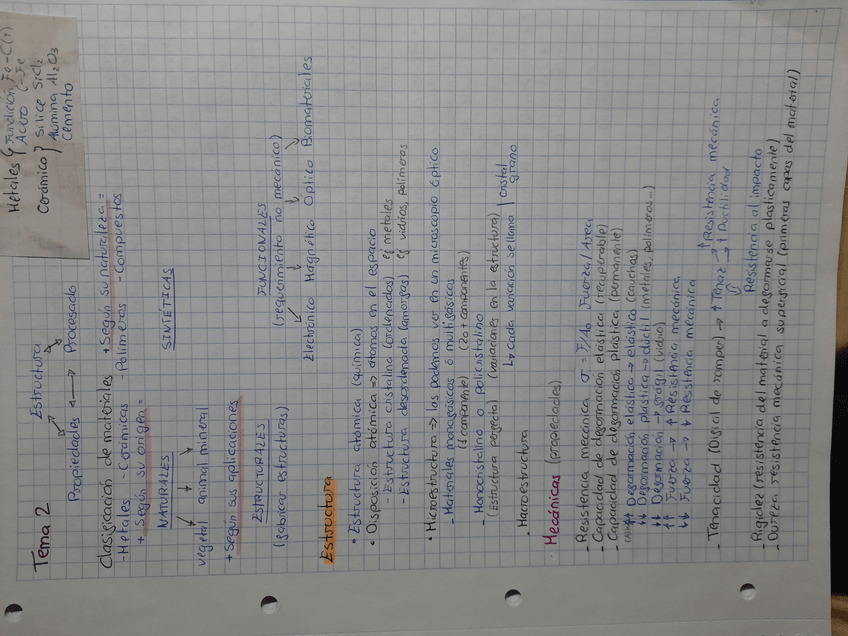 Metales { Fundición Fe-C(↑)
Acero (-Fe
Cerámico } Sílice SiCl2
Alúmina Al2O3
Cemento
Tema 2
Estructura
Propiedades ↔ Procesado
Clasificación de materiales + Según su naturaleza =
- Metales - Cerámicas - Polímeros - Compuestos
+ Según su origen =
NATURALES SINTÉTICAS
vegetal animal mineral
+ Según sus aplicaciones
ESTRUCTURALES FUNCIONALES
(fabricar estructuras) (requerimiento no mecánico)
Electrónico Magnético Óptico Biomateriales
Estructura
• Estructura atómica (química)
• Disposición atómica => átomos en el espacio
- Estructura cristalina (ordenados) ej metales
- Estructura desordenada (amorfas) ej vidrios, polímeros
• Microestructura => las podemos ver en un microscopio óptico
- Materiales monofásicos ó multifásicos
(1 componente) (2 o + componentes)
- Monocristalino o policristalino
(Estructura perfecta) (variaciones en la estructura)
↳ Cada variación se llama | cristal
grano
• Macroestructura
• Mecánicas (propiedades)
- Resistencia mecánica σ = F/A0 Fuerza/Área
- Capacidad de deformación elástica (recuperable)
- Capacidad de deformación plástica (permanente)
↑↑ Deformación elástica → elástico (cauchos)
↓↓ Deformación plástica → dúctil (metales, polímeros...)
↓↓ Deformación → frágil (vidrio)
↑↑ Fuerza → ↑ Resistencia mecánica
↓↓ Fuerza → ↓ Resistencia mecánica
- Tenacidad (Difícil de romper) → ↑ Tenaz → ↑ Resistencia mecánica
→ ↑ Ductilidad
Resistencia al impacto
- Rigidez (resistencia del material a deformarse plásticamente)
- Dureza resistencia mecánica superficial (primeras capas del material)